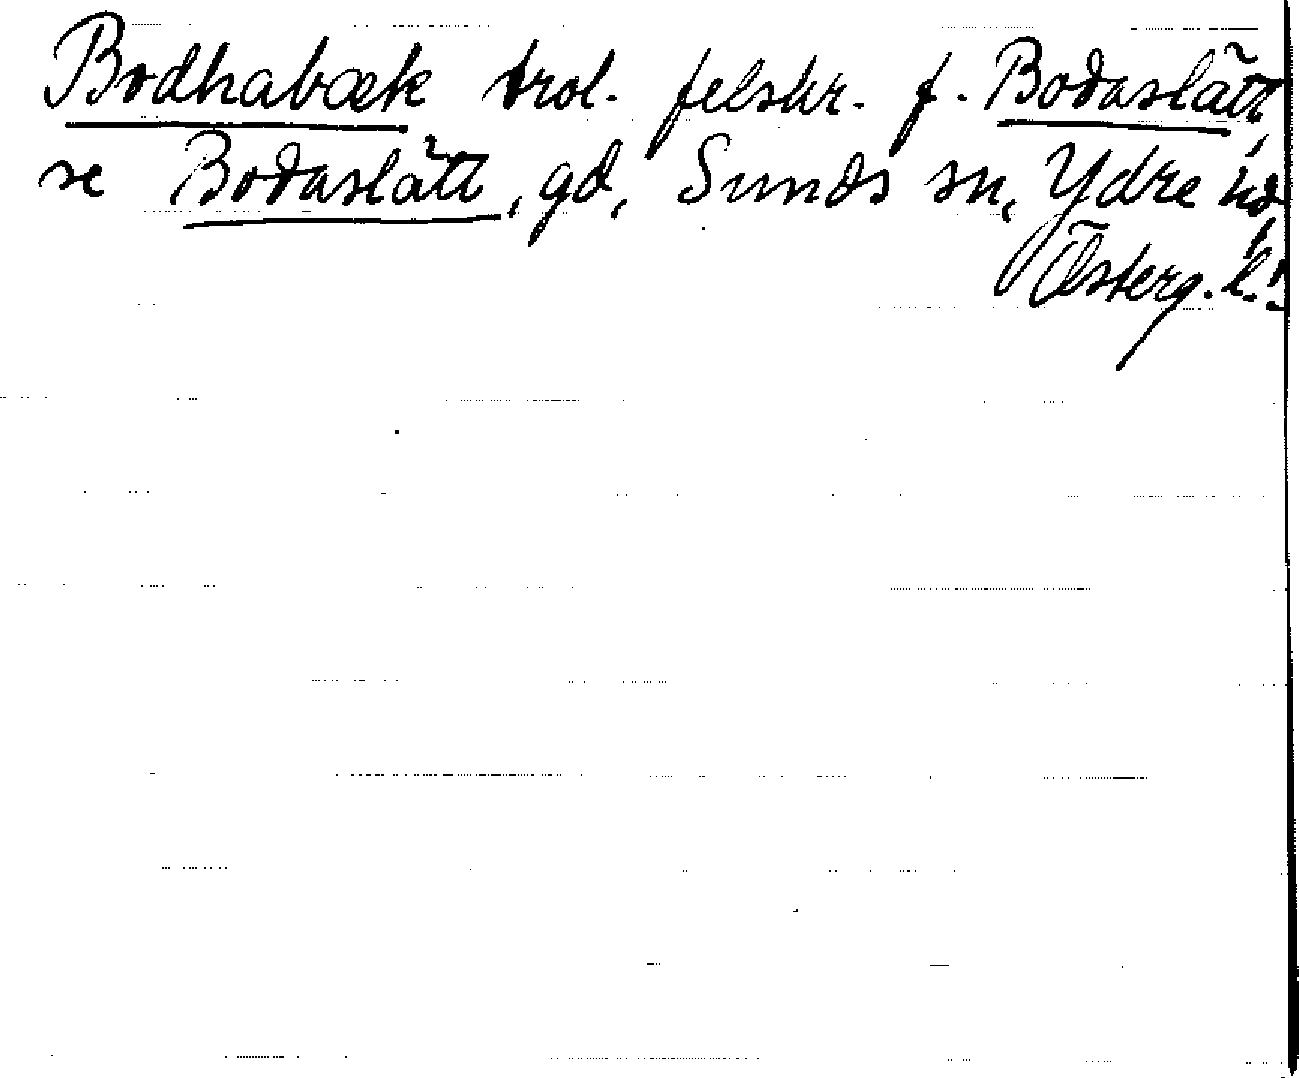 Bodhabæk trol. felskr. f. Bodaslätt,
se Bodaslätt, gd, Sunds sn, Ydre hd,
Österg. l.!